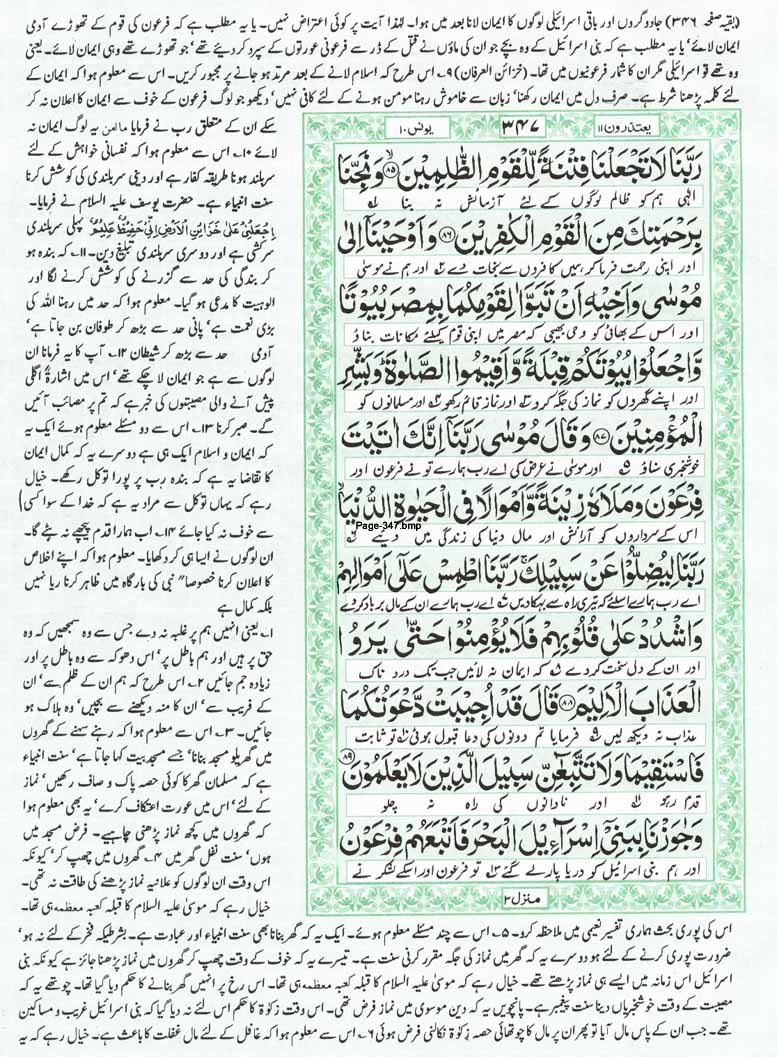 (بقیہ صفحہ ۳۴۶) جادوگروں اور باقی اسرائیلی لوگوں کا ایمان لانا بعد میں ہوا۔ لہٰذا آیت پر کوئی اعتراض نہیں۔ یا یہ مطلب ہے کہ فرعون کی قوم کے تھوڑے آدمی
ایمان لائے' یا یہ مطلب ہے کہ بنی اسرائیل کے وہ بچے جو ان کی ماؤں نے قتل کے ڈر سے فرعونی عورتوں کے سپرد کر دیئے تھے' جو تھوڑے تھے وہی ایمان لائے۔ یعنی
وہ تھے تو اسرائیلی مگر ان کا شمار فرعونیوں میں تھا۔ (خزائن العرفان) ۹۔ اس طرح کہ اسلام لانے کے بعد مرتد ہو جانے پر مجبور کریں۔ اس سے معلوم ہوا کہ ایمان کے
لئے کلمہ پڑھنا شرط ہے۔ صرف دل میں ایمان رکھنا' زبان سے خاموش رہنا مومن ہونے کے لئے کافی نہیں' دیکھو جو لوگ فرعون کے خوف سے ایمان کا اعلان نہ کر
سکے ان کے متعلق رب نے فرمایا ماامن یہ لوگ ایمان نہ
لائے ۱۰۔ اس سے معلوم ہوا کہ نفسانی خواہش کے لئے
سربلند ہونا طریقہ کفار ہے اور دینی سربلندی کی کوشش کرنا
سنت انبیاء ہے۔ حضرت یوسف علیہ السلام نے فرمایا۔
اِجْعَلْنِیْ عَلٰی خَزَآئِنِ الْاَرْضِ اِنِّیْ حَفِیْظٌ عَلِیْمٌ پہلی سربلندی
سرکشی ہے اور دوسری سربلندی تبلیغ دین۔ ۱۱۔ کہ بندہ ہو
کر بندگی کی حد سے گزرنے کی کوشش کرنے لگا اور
الوہیت کا مدعی ہو گیا۔ معلوم ہوا کہ حد میں رہنا اللہ کی
بڑی نعمت ہے' پانی حد سے بڑھ کر طوفان بن جاتا ہے'
آدمی حد سے بڑھ کر شیطان ۱۲۔ آپ کا یہ فرمانا ان
لوگوں سے ہے جو ایمان لا چکے تھے' اس میں اشارۃً اگلی
پیش آنے والی مصیبتوں کی خبر ہے کہ تم پر مصائب آئیں
گے۔ صبر کرنا ۱۳۔ اس سے دو مسئلے معلوم ہوئے ایک یہ
کہ ایمان و اسلام ایک ہی ہے دوسرے یہ کہ کمال ایمان
کا تقاضا یہ ہے کہ بندہ رب پر پورا توکل رکھے۔ خیال
رہے کہ یہاں توکل سے مراد یہ ہے کہ خدا کے سوا کسی
سے خوف نہ کیا جائے ۱۴۔ اب ہمارا قدم پیچھے نہ ہٹے گا۔
ان لوگوں نے ایسا ہی کر دکھایا۔ معلوم ہوا کہ اپنے اخلاص
کا اعلان کرنا خصوصاً نبی کی بارگاہ میں ظاہر کرنا ریا نہیں
بلکہ کمال ہے
۱۔ یعنی انہیں ہم پر غلبہ نہ دے جس سے وہ سمجھیں کہ وہ
حق پر ہیں اور ہم باطل پر' اس دھوکہ سے وہ باطل پر اور
زیادہ جم جائیں ۲۔ اس طرح کہ ہم ان کے ظلم سے' ان
کے فریب سے' ان کا منہ دیکھنے سے بچیں' وہ ہلاک ہو
جائیں۔ ۳۔ اس سے معلوم ہوا کہ رہنے سہنے کے گھروں
میں گھریلو مسجد بنانا' جسے مسجد بیت کہا جاتا ہے' سنت انبیاء
ہے کہ مسلمان گھر کا کوئی حصہ پاک و صاف رکھیں' نماز
کے لئے' اس میں عورت اعتکاف کرے' یہ بھی معلوم ہوا
کہ گھروں میں کچھ نماز پڑھنی چاہیے۔ فرض مسجد میں
ہوں' سنت نفل گھر میں ۴۔ گھروں میں چھپ کر' کیونکہ
اس وقت ان لوگوں کو علانیہ نماز پڑھنے کی طاقت نہ تھی۔
خیال رہے کہ موسیٰ علیہ السلام کا قبلہ کعبہ معظمہ ہی تھا۔
یعتذرون ۱۱
۳۴۷
یونس ۱۰
رَبَّنَا لَا تَجْعَلْنَا فِتْنَةً لِّلْقَوْمِ الظّٰلِمِیْنَ ۸۵ وَنَجِّنَا
الٰہی ہم کو ظالم لوگوں کے لئے آزمائش نہ بنا
بِرَحْمَتِكَ مِنَ الْقَوْمِ الْكٰفِرِیْنَ ۸۶ وَاَوْحَیْنَاۤ اِلٰی
اور اپنی رحمت فرما کر ہمیں کافروں سے نجات دے اور ہم نے موسیٰ
مُوْسٰی وَاَخِیْهِ اَنْ تَبَوَّاٰ لِقَوْمِكُمَا بِمِصْرَ بُیُوْتًا
اور اس کے بھائی کو وحی بھیجی کہ مصر میں اپنی قوم کیلئے مکانات بناؤ
وَّاجْعَلُوْا بُیُوْتَكُمْ قِبْلَةً وَّاَقِیْمُوا الصَّلٰوةَ وَبَشِّرِ
اور اپنے گھروں کو نماز کی جگہ کرو اور نماز قائم رکھو اور مسلمانوں کو
الْمُؤْمِنِیْنَ ۸۷ وَقَالَ مُوْسٰی رَبَّنَاۤ اِنَّكَ اٰتَیْتَ
خوشخبری سناؤ اور موسیٰ نے عرض کی اے رب ہمارے تو نے فرعون اور
فِرْعَوْنَ وَمَلَاَهٗ زِیْنَةً وَّاَمْوَالًا فِی الْحَیٰوةِ الدُّنْیَا
Page-347.bmp
اس کے سرداروں کو آرائش اور مال دنیا کی زندگی میں دیئے
رَبَّنَا لِیُضِلُّوْا عَنْ سَبِیْلِكَ رَبَّنَا اطْمِسْ عَلٰۤی اَمْوَالِهِمْ
اے رب ہمارے اسلئے کہ تیری راہ سے بہکا دیں اے رب ہمارے ان کے مال برباد کر دے
وَاشْدُدْ عَلٰی قُلُوْبِهِمْ فَلَا یُؤْمِنُوْا حَتّٰی یَرَوُا
اور ان کے دل سخت کر دے کہ ایمان نہ لائیں جب تک درد ناک
الْعَذَابَ الْاَلِیْمَ ۸۸ قَالَ قَدْ اُجِیْبَتْ دَّعْوَتُكُمَا
عذاب نہ دیکھ لیں فرمایا تم دونوں کی دعا قبول ہوئی تو ثابت
فَاسْتَقِیْمَا وَلَا تَتَّبِعٰٓنِّ سَبِیْلَ الَّذِیْنَ لَا یَعْلَمُوْنَ ۸۹
قدم رہو اور نادانوں کی راہ نہ چلو
وَجٰوَزْنَا بِبَنِیْۤ اِسْرَآءِیْلَ الْبَحْرَ فَاَتْبَعَهُمْ فِرْعَوْنُ
اور ہم بنی اسرائیل کو دریا پار لے گئے تو فرعون اور اسکے لشکر نے
منزل ۳
اس کی پوری بحث ہماری تفسیر نعیمی میں ملاحظہ کرو۔ ۵۔ اس سے چند مسئلے معلوم ہوئے۔ ایک یہ کہ گھر بنانا بھی سنت انبیاء اور عبادت ہے۔ بشرطیکہ فخر کے لئے نہ ہو'
ضرورت پوری کرنے کے لئے ہو دوسرے یہ کہ گھر میں نماز کی جگہ مقرر کرنی سنت ہے۔ تیسرے یہ کہ خوف کے وقت چھپ کر گھروں میں نماز پڑھنا جائز ہے کیونکہ بنی
اسرائیل اس زمانہ میں ایسے ہی نماز پڑھتے تھے۔ خیال رہے کہ موسیٰ علیہ السلام کا قبلہ کعبہ معظمہ ہی تھا۔ اس رخ پر انہیں گھر بنانے کا حکم دیا گیا تھا۔ چوتھے یہ کہ
مصیبت کے وقت خوشخبریاں دینا سنت پیغمبر ہے۔ پانچویں یہ کہ دین موسوی میں نماز فرض تھی۔ اس وقت زکوٰۃ کا حکم اس لئے نہ دیا گیا کہ بنی اسرائیل غریب و مساکین
تھے۔ جب ان کے پاس مال آیا تو پھر ان پر مال کا چوتھائی حصہ زکوٰۃ نکالنی فرض ہوئی ۶۔ اس سے معلوم ہوا کہ غافل کے لئے مال غفلت کا باعث ہے۔ خیال رہے کہ یہ